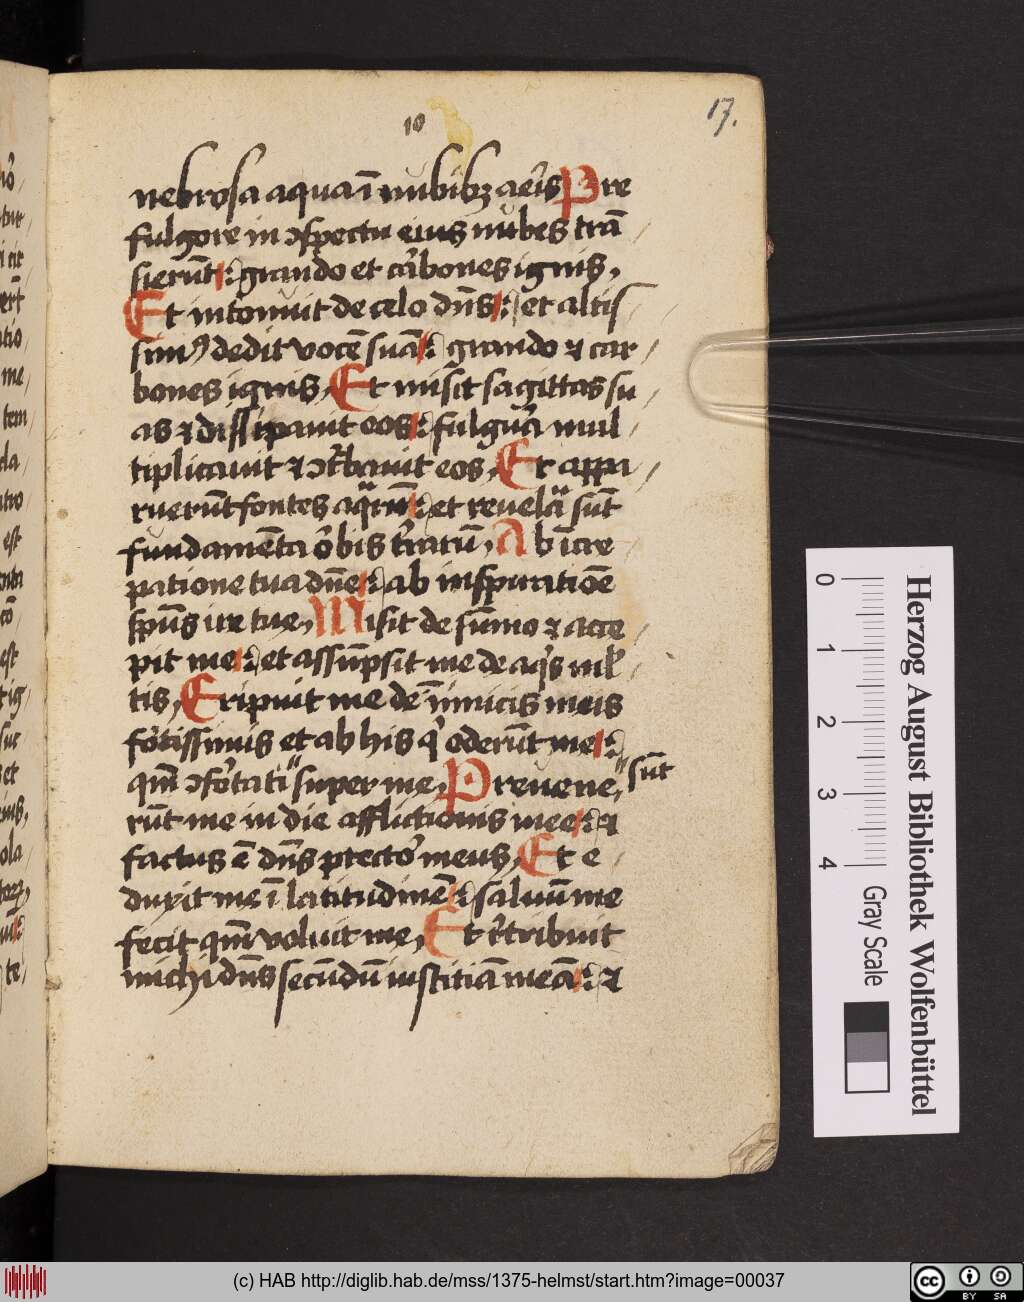 17.
10
nebrosa aqua ī nubibꝫ aeris Pre
fulgore in ꝯspectu eius nubes trā
sierūt: grando et carbones ignis,
Et intonuit de celo dn̄s: et altis
simꝰ dedit vocē suā: grando ⁊ car
bones ignis, Et misit sagittas su
as ⁊ dissipauit eos: fulgura mul
tiplicauit ⁊ ꝯt͛bauit eos, Et appa
ruerūt fontes aq̈rū: et reuelata sūt
fundamēta orbis t͛raru, Ab īcre
patione tua dn̄e: ab inspiratiōe
sp̄us ire tue, Misit de sūmo ⁊ acce
pit me: et assūpsit me de aqͥs ml̛
tis, Eripuit me de īimicis meis
fortissimis et ab his qͥ oderūt me:
qm̄ ꝯfortati " super me, Preuene,
" sūt
rūt me in die afflictionis mee: ⁊
factus ē dn̄s ptector meus, Et e
duxit me ī latitudinē: saluū me
fecit qm̄ voluit me, Et r͛tribuit
michi dn̄s secūdū iustitiā meā: ⁊
Herzog August Bibliothek Wolfenbüttel
0 1 2 3 4
Gray Scale
(c) HAB http://diglib.hab.de/mss/1375-helmst/start.htm?image=00037
cc BY SA